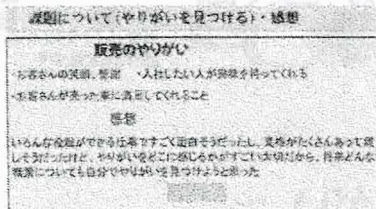 課題について(やりがいを見つける)・感想
販売のやりがい
・お客さんの笑顔、感謝 ・入社したい人が興味を持ってくれる
・お客さんが売った車に満足してくれること
感想
いろんな役職ができる仕事ですごく面白そうだったし、資格がたくさんあって難
しそうだったけど、やりがいをどこに感じるかがすごい大切だから、将来どんな
職業についても自分でやりがいを見つけようと思った